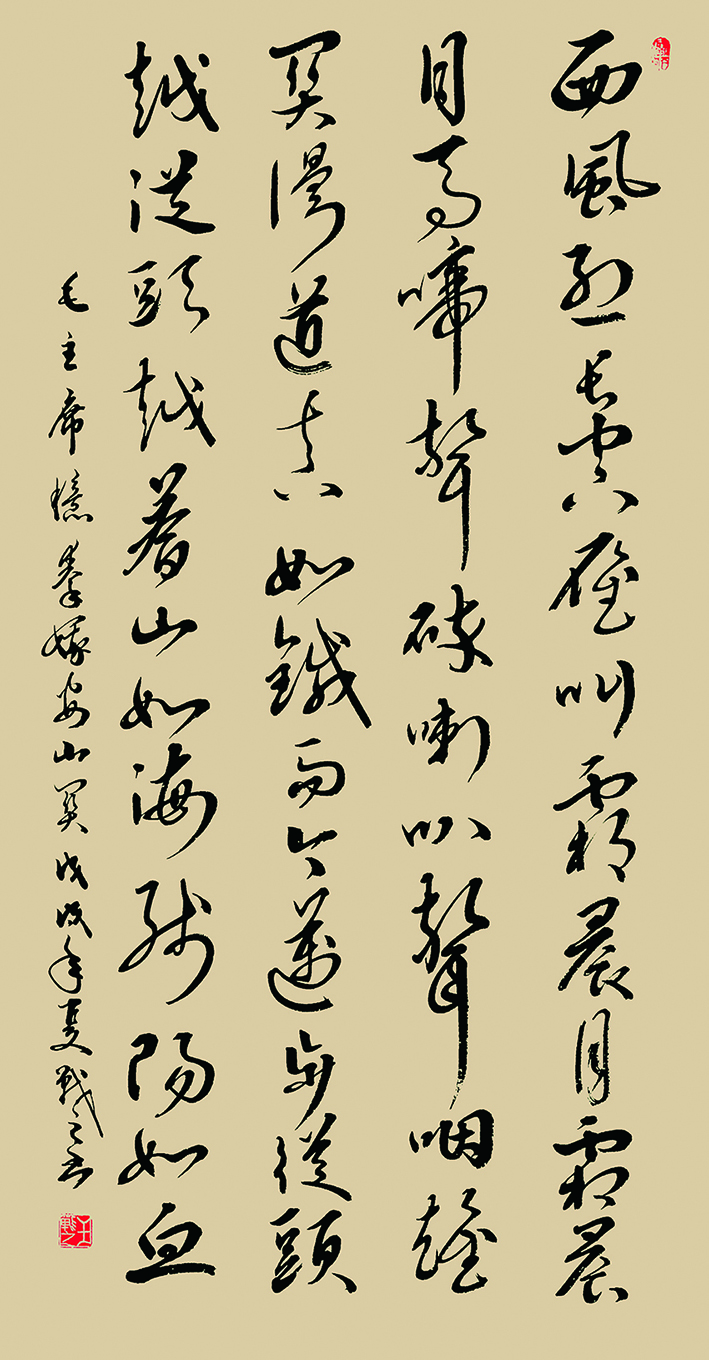 西風烈長空雁叫霜晨月霜晨
月馬啼聲碎喇叭聲咽雄
關漫道真如鐵而今邁步從頭
越從頭越蒼山如海殘陽如血
毛主席憶秦娥婁山關戊戌年夏戰之書